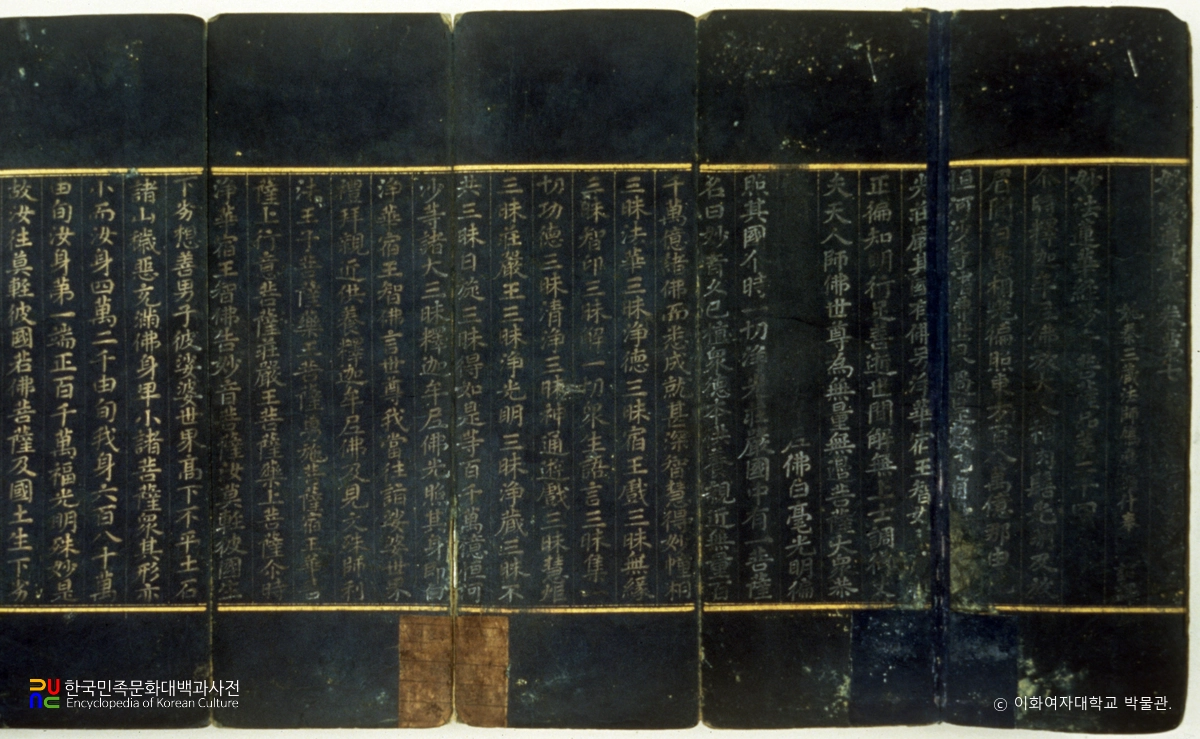 妙法蓮華經卷第七
姚秦三藏法師鳩摩羅什奉 詔譯
妙法蓮華經妙音菩薩品第二十四
尒時釋迦牟尼佛放大人相肉髻光明及放
眉間白毫相光徧照東方百八萬億那由他
恒河沙等諸佛世界過是數已有世界名淨
光莊嚴其國有佛号淨華宿王智如
正徧知明行足善逝世間解無上士調御丈
夫天人師佛世尊為無量無邊菩薩大衆恭
尼佛白毫光明徧
照其國尒時一切淨光莊嚴國中有一菩薩
名曰妙音久已植衆德本供養親近無量百
千萬億諸佛而悉成就甚深智慧得妙幢相
三昧法華三昧淨德三昧宿王戲三昧無緣
三昧智印三昧解一切衆生語言三昧集一
切功德三昧清淨三昧神通遊戲三昧慧炬
三昧莊嚴王三昧淨光明三昧淨藏三昧不
共三昧日旋三昧得如是等百千萬億恒河
沙等諸大三昧釋迦牟尼佛光照其身即白
淨華宿王智佛言世尊我當往詣娑婆世界
禮拜親近供養釋迦牟尼佛及見文殊師利
法王子菩薩藥王菩薩勇施菩薩宿王華菩
薩上行意菩薩莊嚴王菩薩藥上菩薩尒時
淨華宿王智佛告妙音菩薩汝莫輕彼國生
下劣想善男子彼娑婆世界髙下不平土石
諸山穢惡充滿佛身卑小諸菩薩衆其形亦
小而汝身四萬二千由旬我身六百八十萬
由旬汝身第一端正百千萬福光明殊妙是
故汝往莫輕彼國若佛菩薩及國土生下劣
한국민족문화대백과사전
Encyclopedia of Korean Culture
© 이화여자대학교 박물관.